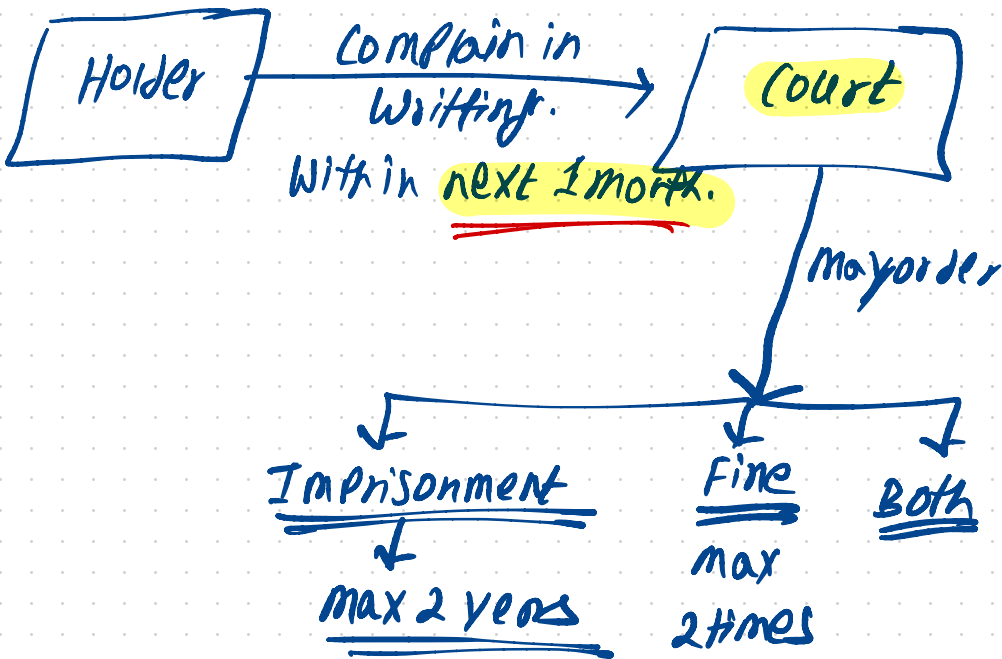 Holder
Complain in
Writting.
Within next 1 month.
Court
may order
Imprisonment
Fine
Both
max 2 years
max
2 times